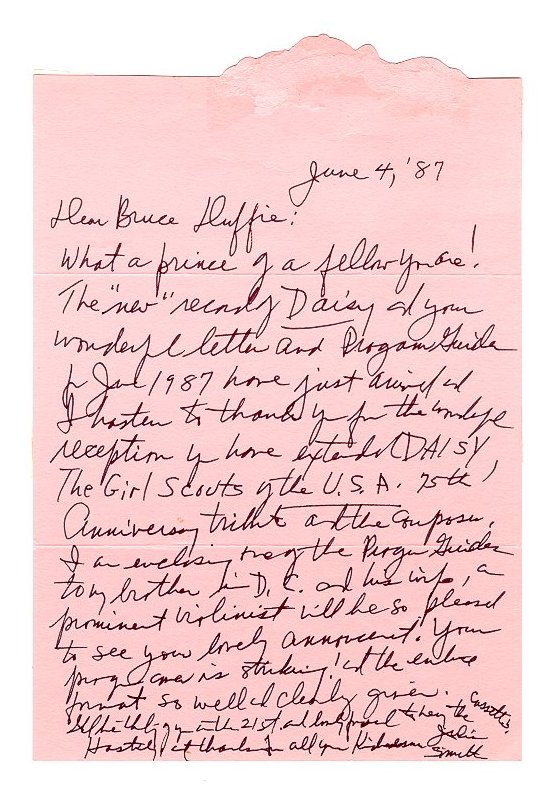 June 4, '87
Dear Bruce Duffie:
What a prince of a fellow you are!
The "new" record of Daisy and your
wonderful letter and Program Guides
for June 1987 have just arrived and
I hasten to thank you for the wonderful
reception you have extended (DAISY
The Girl Scouts of the U.S.A. 75th)
Anniversary tribute and the composer.
I am enclosing one of the Program Guides
to my brother in D.C. and his wife, a
prominent violinist will be so pleased
to see your lovely announcement. Your
program cover is striking! and the entire
format so well and clearly given.
I'll be thinking of you on the 21st and look forward to hearing the cassettes.
Hastily and thanks for all your kindnesses
Julia
Smith